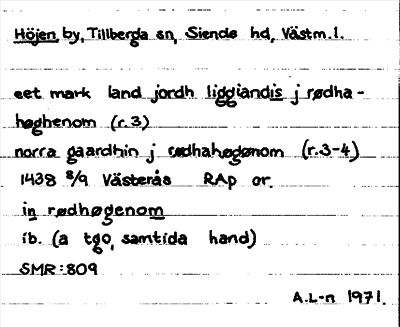 Höjen, by, Tillberga sn, Siende hd, Västm.l.
eet mark land jordh liggiandis j rødha-
høghenom (r.3)
norra gaardhin j rødhahøgdonom (r.3-4)
1438 8/9 Västerås RAp or.
in rødhøgenom
ib. (a tgo, samtida hand)
SMR:809
A.L-n 1971.